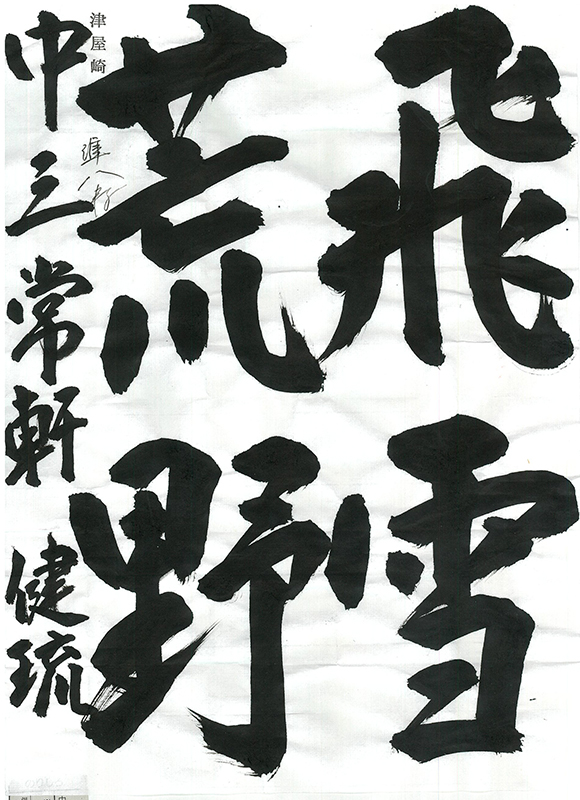 飛雪
荒野
津屋崎
準八段
中三常軒健琉